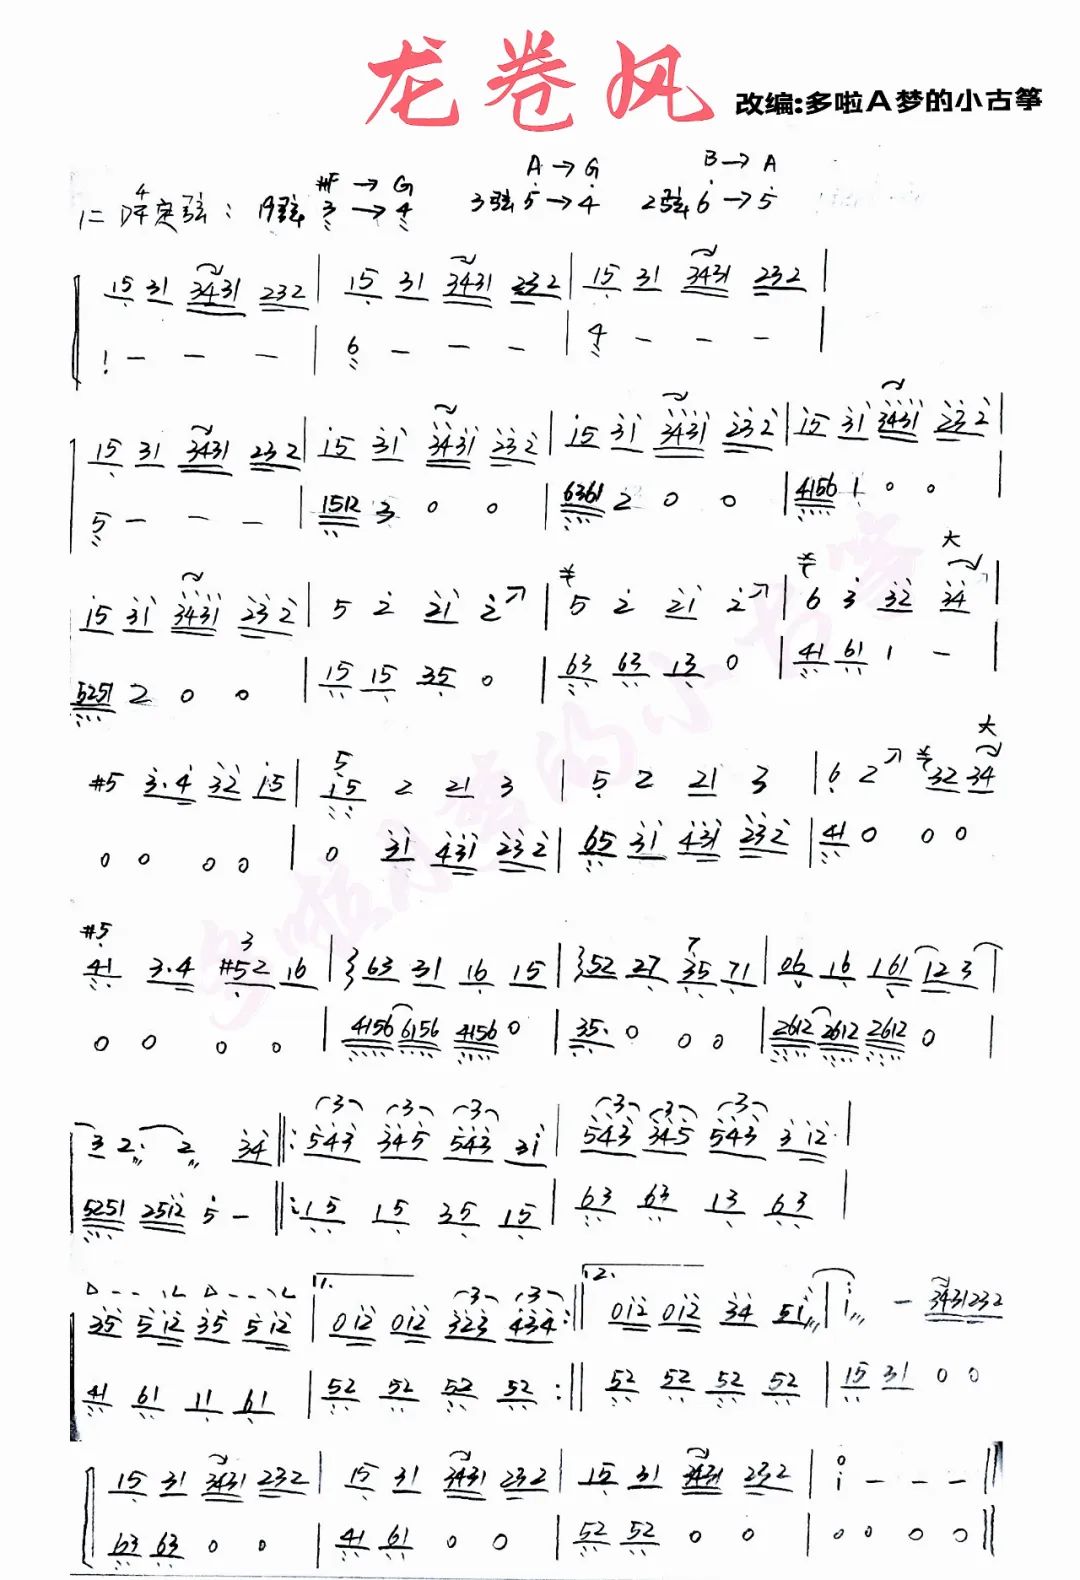 龙卷风 改编:多啦A梦的小古筝
#F → G A → G B → A
3 → 4 3弦 5 → 4 2弦 6 → 5
15 31 3431 232 | 15 31 3431 232 | 15 31 3431 232 |
1 - - - | 6 - - - | 4 - - - |
15 31 3431 232 | 15 31 3431 232 | 15 31 3431 232 | 15 31 3431 232 |
5 - - - | 1512 3 0 0 | 6361 2 0 0 | 4156 1 0 0 |
15 31 3431 232 | 5 2 21 2 | 5 2 21 2 | 6 3 32 34 |
5251 2 0 0 | 15 15 35 0 | 63 63 13 0 | 41 61 1 - |
#5 3·4 32 15 | 15 2 21 3 | 5 2 21 3 | 6 2 32 34
0 0 0 0 | 0 31 431 232 | 65 31 431 232 | 41 0 0 0
41 3·4 #52 16 | 63 31 16 15 | 52 27 35 71 | 06 16 161 123
0 0 0 0 | 4156 6156 4156 0 | 35· 0 0 0 | 2612 2612 2612 0 |
3 2· 2 34 ‖: 543 345 543 31 | 543 345 543 312 |
5251 2512 5 - ‖: 15 15 35 15 | 63 63 13 63 |
35 512 35 512 | 1. 012 012 323 434 :‖ 2. 012 012 34 51 | 1 - 3431232
41 61 11 61 | 52 52 52 52 :‖ 52 52 52 52 | 15 31 0 0
15 31 3431 232 | 15 31 3431 232 | 15 31 3431 232 | 1 - - - ‖
63 63 0 0 | 41 61 0 0 | 52 52 0 0 | 0 0 0 0 ‖